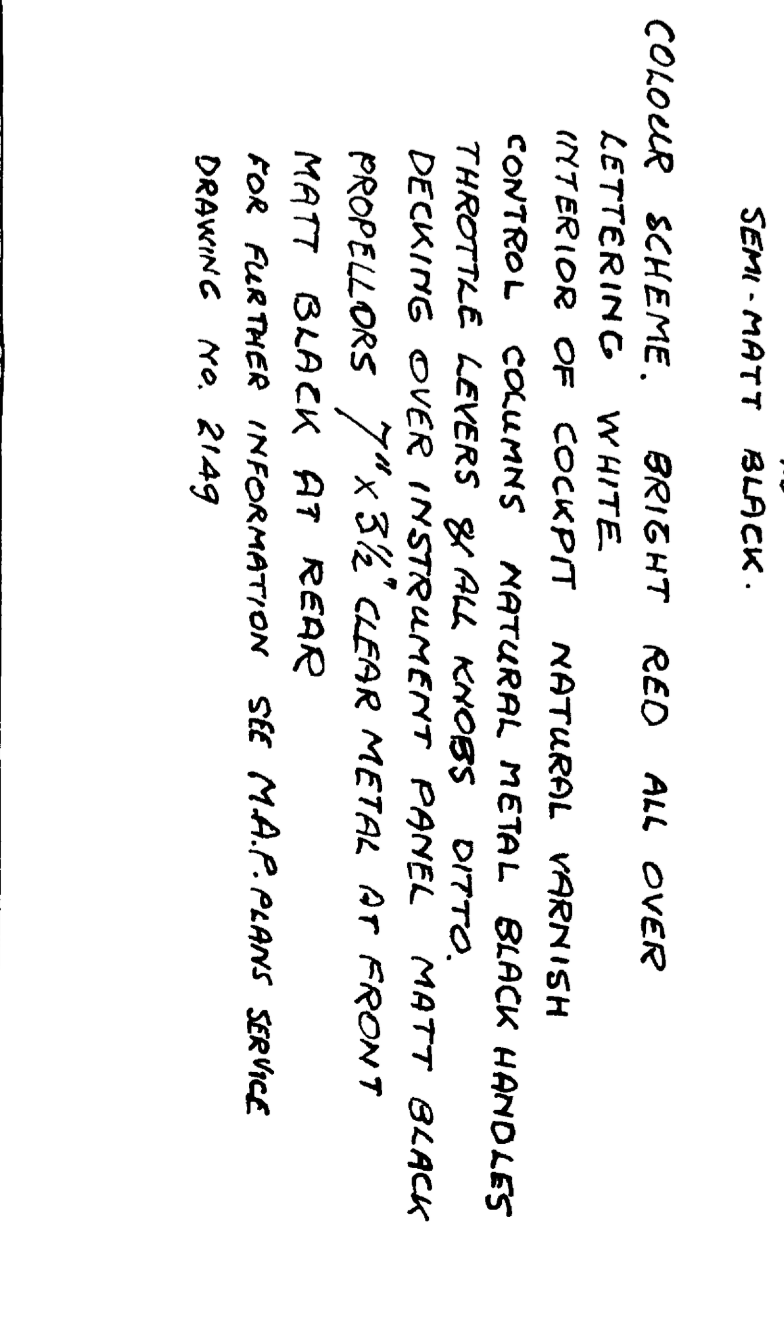 SEMI-MATT BLACK.
COLOUR SCHEME. BRIGHT RED ALL OVER
LETTERING WHITE
INTERIOR OF COCKPIT NATURAL VARNISH
CONTROL COLUMNS NATURAL METAL BLACK HANDLES
THROTTLE LEVERS & ALL KNOBS DITTO.
DECKING OVER INSTRUMENT PANEL MATT BLACK
PROPELLORS 7" x 3½" CLEAR METAL AT FRONT
MATT BLACK AT REAR
FOR FURTHER INFORMATION SEE M.A.P. PLANS SERVICE
DRAWING NO. 2149